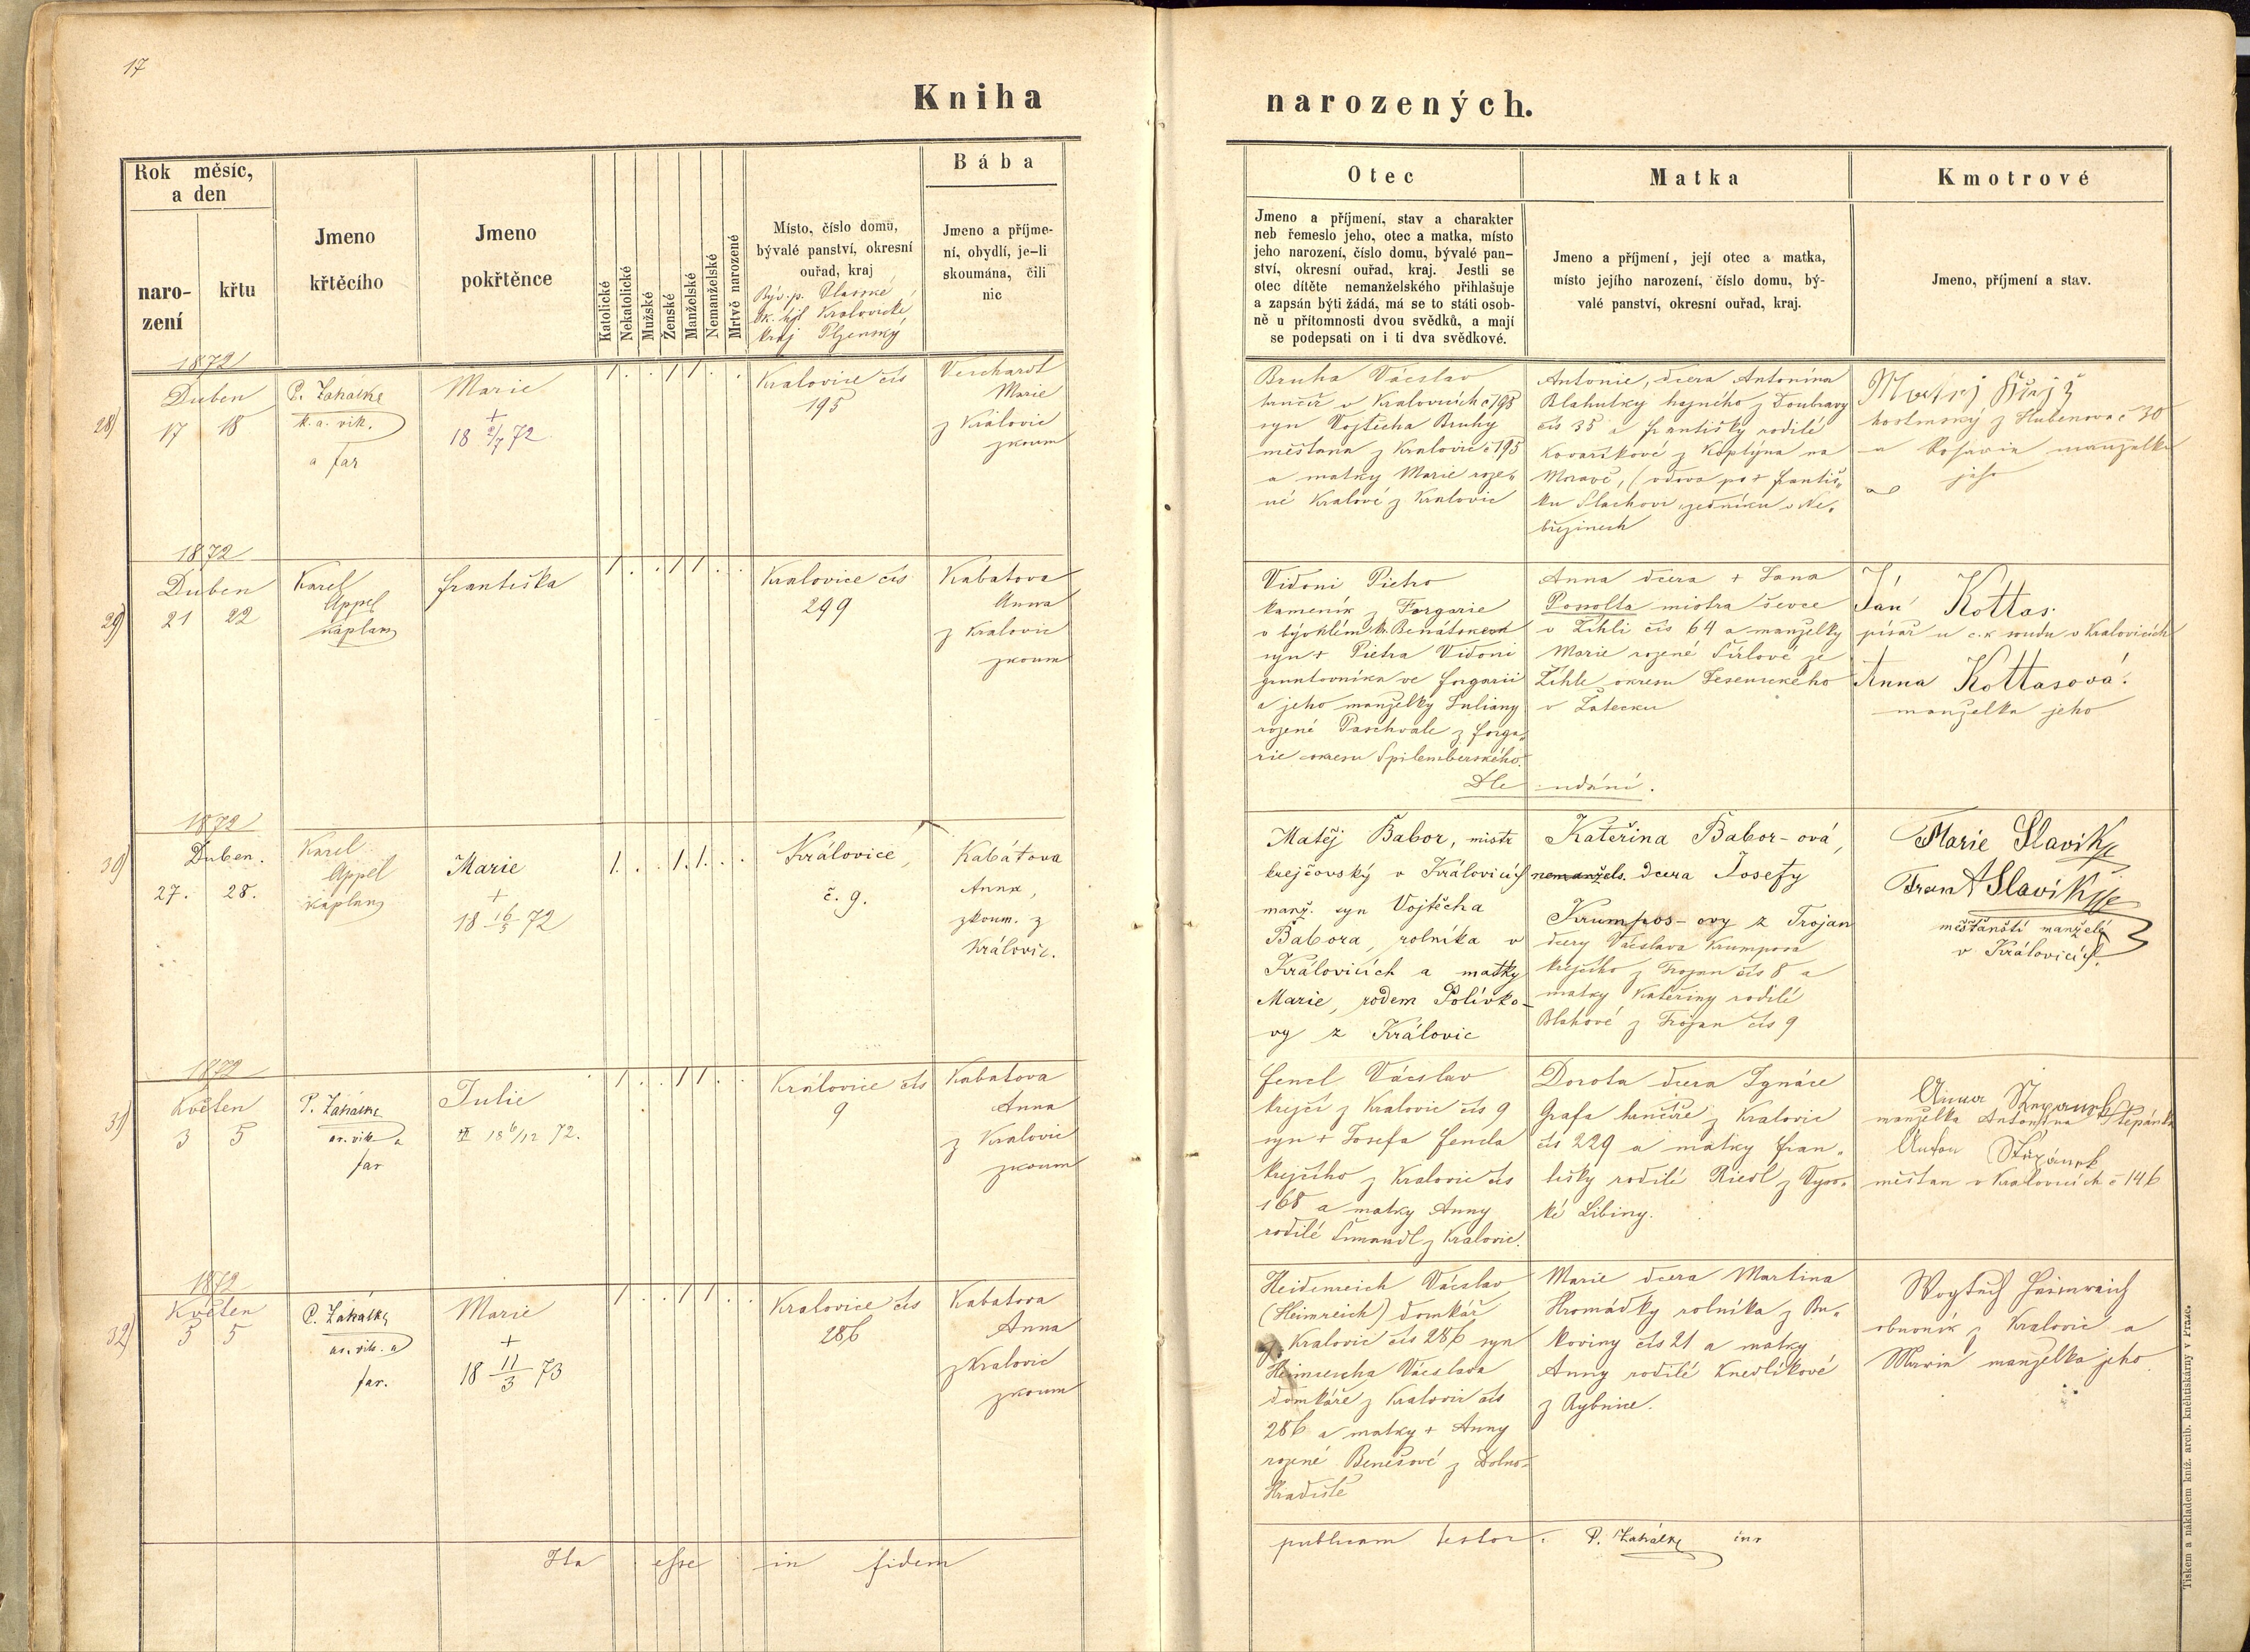 17
Kniha narozených.
Rok měsíc,
a den
naro-
zení
křtu
Jmeno
křtěcího
Jmeno
pokřtěnce
Katolické
Nekatolické
Mužské
Ženské
Manželské
Nemanželské
Mrtvě narozené
Místo, číslo domu,
bývalé panství, okresní
ouřad, kraj
Býv. p. Plasské,
Kralovické,
kraj Plzenský
Bába
Jmeno a příjme-
ní, obydlí, je-li
skoumána, čili
nic
Otec
Jmeno a příjmení, stav a charakter
neb řemeslo jeho, otec a matka, místo
jeho narození, číslo domu, bývalé pan-
ství, okresní ouřad, kraj. Jestli se
otec dítěte nemanželského přihlašuje
a zapsán býti žádá, má se to státi osob-
ně u přítomnosti dvou svědků, a mají
se podepsati on i ti dva svědkové.
Matka
Jmeno a příjmení, její otec a matka,
místo jejího narození, číslo domu, bý-
valé panství, okresní ouřad, kraj.
Kmotrové
Jmeno, příjmení a stav.
28)
1872
Duben
17 18
P. Zahálka
k. a. vik.
a far
Marie
+
18 2/7 72
1 . . 1 1 . .
Kralovice čís
195
Marie
z Kralovic
zkoum
Bruha Václav
v Kralovicích č 195
syn Vojtěcha Bruhy
měšťana z Kralovic č 195
a matky Marie roze-
né Kralové z Kralovic
Antonie, dcera Antonína
Blahutky hajného z Doubravy
čís 35 a Františky rodilé
Kovaříkové z Koplýna na
Moravě, (vdova po + Františ-
ku Slachovi zedníku v Ne-
březinech
Matěj
hostinský z Hubenova č 30
a manželka
jeho
29)
1872
Duben
21 22
Karel
Appel
kaplan
Františka
1 . . 1 1 . .
Kralovice čís
299
Kabatova
Anna
z Kralovic
zkoum
Vidoni Pietro
kameník z Forgarie
v Benátském
syn + Pietra Vidoni
gruntovníka ve Forgarii
a jeho manželky Juliany
rozené Paschvale z Forga-
rie okresu Spilemberského.
Dle udání.
Anna dcera + Jana
Posolta mistra ševce
v Žihli čís 64 a manželky
Marie rozené Širlové ze
Žihle okresu Jesenického
v Žatecku
Jan Kottas
písař u c.k soudu v Kralovicích
Anna Kottasová.
manželka jeho
30)
1872
Duben.
27. 28.
Karel
Appel
kaplan
Marie
+
18 16/5 72
1 . . 1. 1. . .
Královice,
č. 9.
Kabátova
Anna,
zkoum. z
Královic.
Matěj Babor, mistr
krejčovský v Královicích
manž. syn Vojtěcha
Babora, rolníka v
Královicích a matky
Marie, rodem Polívko-
vy z Královic
Kateřina Babor-ová,
nemanžels. dcera Josefy
Krumpos-ovy z Trojan
dcery Václava Krumposa
krejčího z Trojan čís 8 a
matky Kateřiny rodilé
Blahové z Trojan čís 9
Marie Slavik
Frant Slavik
měšťanští manželé
v Královicích.
31)
1872
Květen
3 5
P. Zahálka
ar. vik a
far
Julie
18 6/12 72.
1 . . 1 1 . .
Kralovice čís
9
Kabatova
Anna
z Kralovic
zkoum
Fencl Václav
krejčí z Kralovic čís 9
syn + Josefa Fencla
krejčího z Kralovic čís
168 a matky Anny
rodilé Šmandl z Kralovic.
Dorota dcera Ignáce
Grafa hrnčíře z Kralovic
čís 229 a matky Fran-
tišky rodilé Riedl z Vyso-
ké Libiny.
Anna Štepanek
manželka Antonína Štěpánka
Anton Štěpánek
měšťan v Kralovicích č 146
32)
1872
Květen
5 5
P. Zahálka
ar. vik. a
far.
Marie
+
18 11/3 73
1 . . 1 1 . .
Kralovice čís
286
Kabatova
Anna
z Kralovic
zkoum
Heidenreich Václav
(Heimreich) domkář
z Kralovic čís 286 syn
Heimreicha Václava
domkáře z Kralovic čís
286 a matky + Anny
rozené Benešové z Dolno-
Hradiště
Marie dcera Martina
Hromádky rolníka z Bu-
koviny čís 21 a matky
Anny rodilé Knedlíkové
z Rybnice.
z Kralovic a
Maria manželka jeho
Ita esse in fidem publicam testor. P. Zahálka
Tiskem a nákladem kníž. arcib. knihtiskárny v Praze.